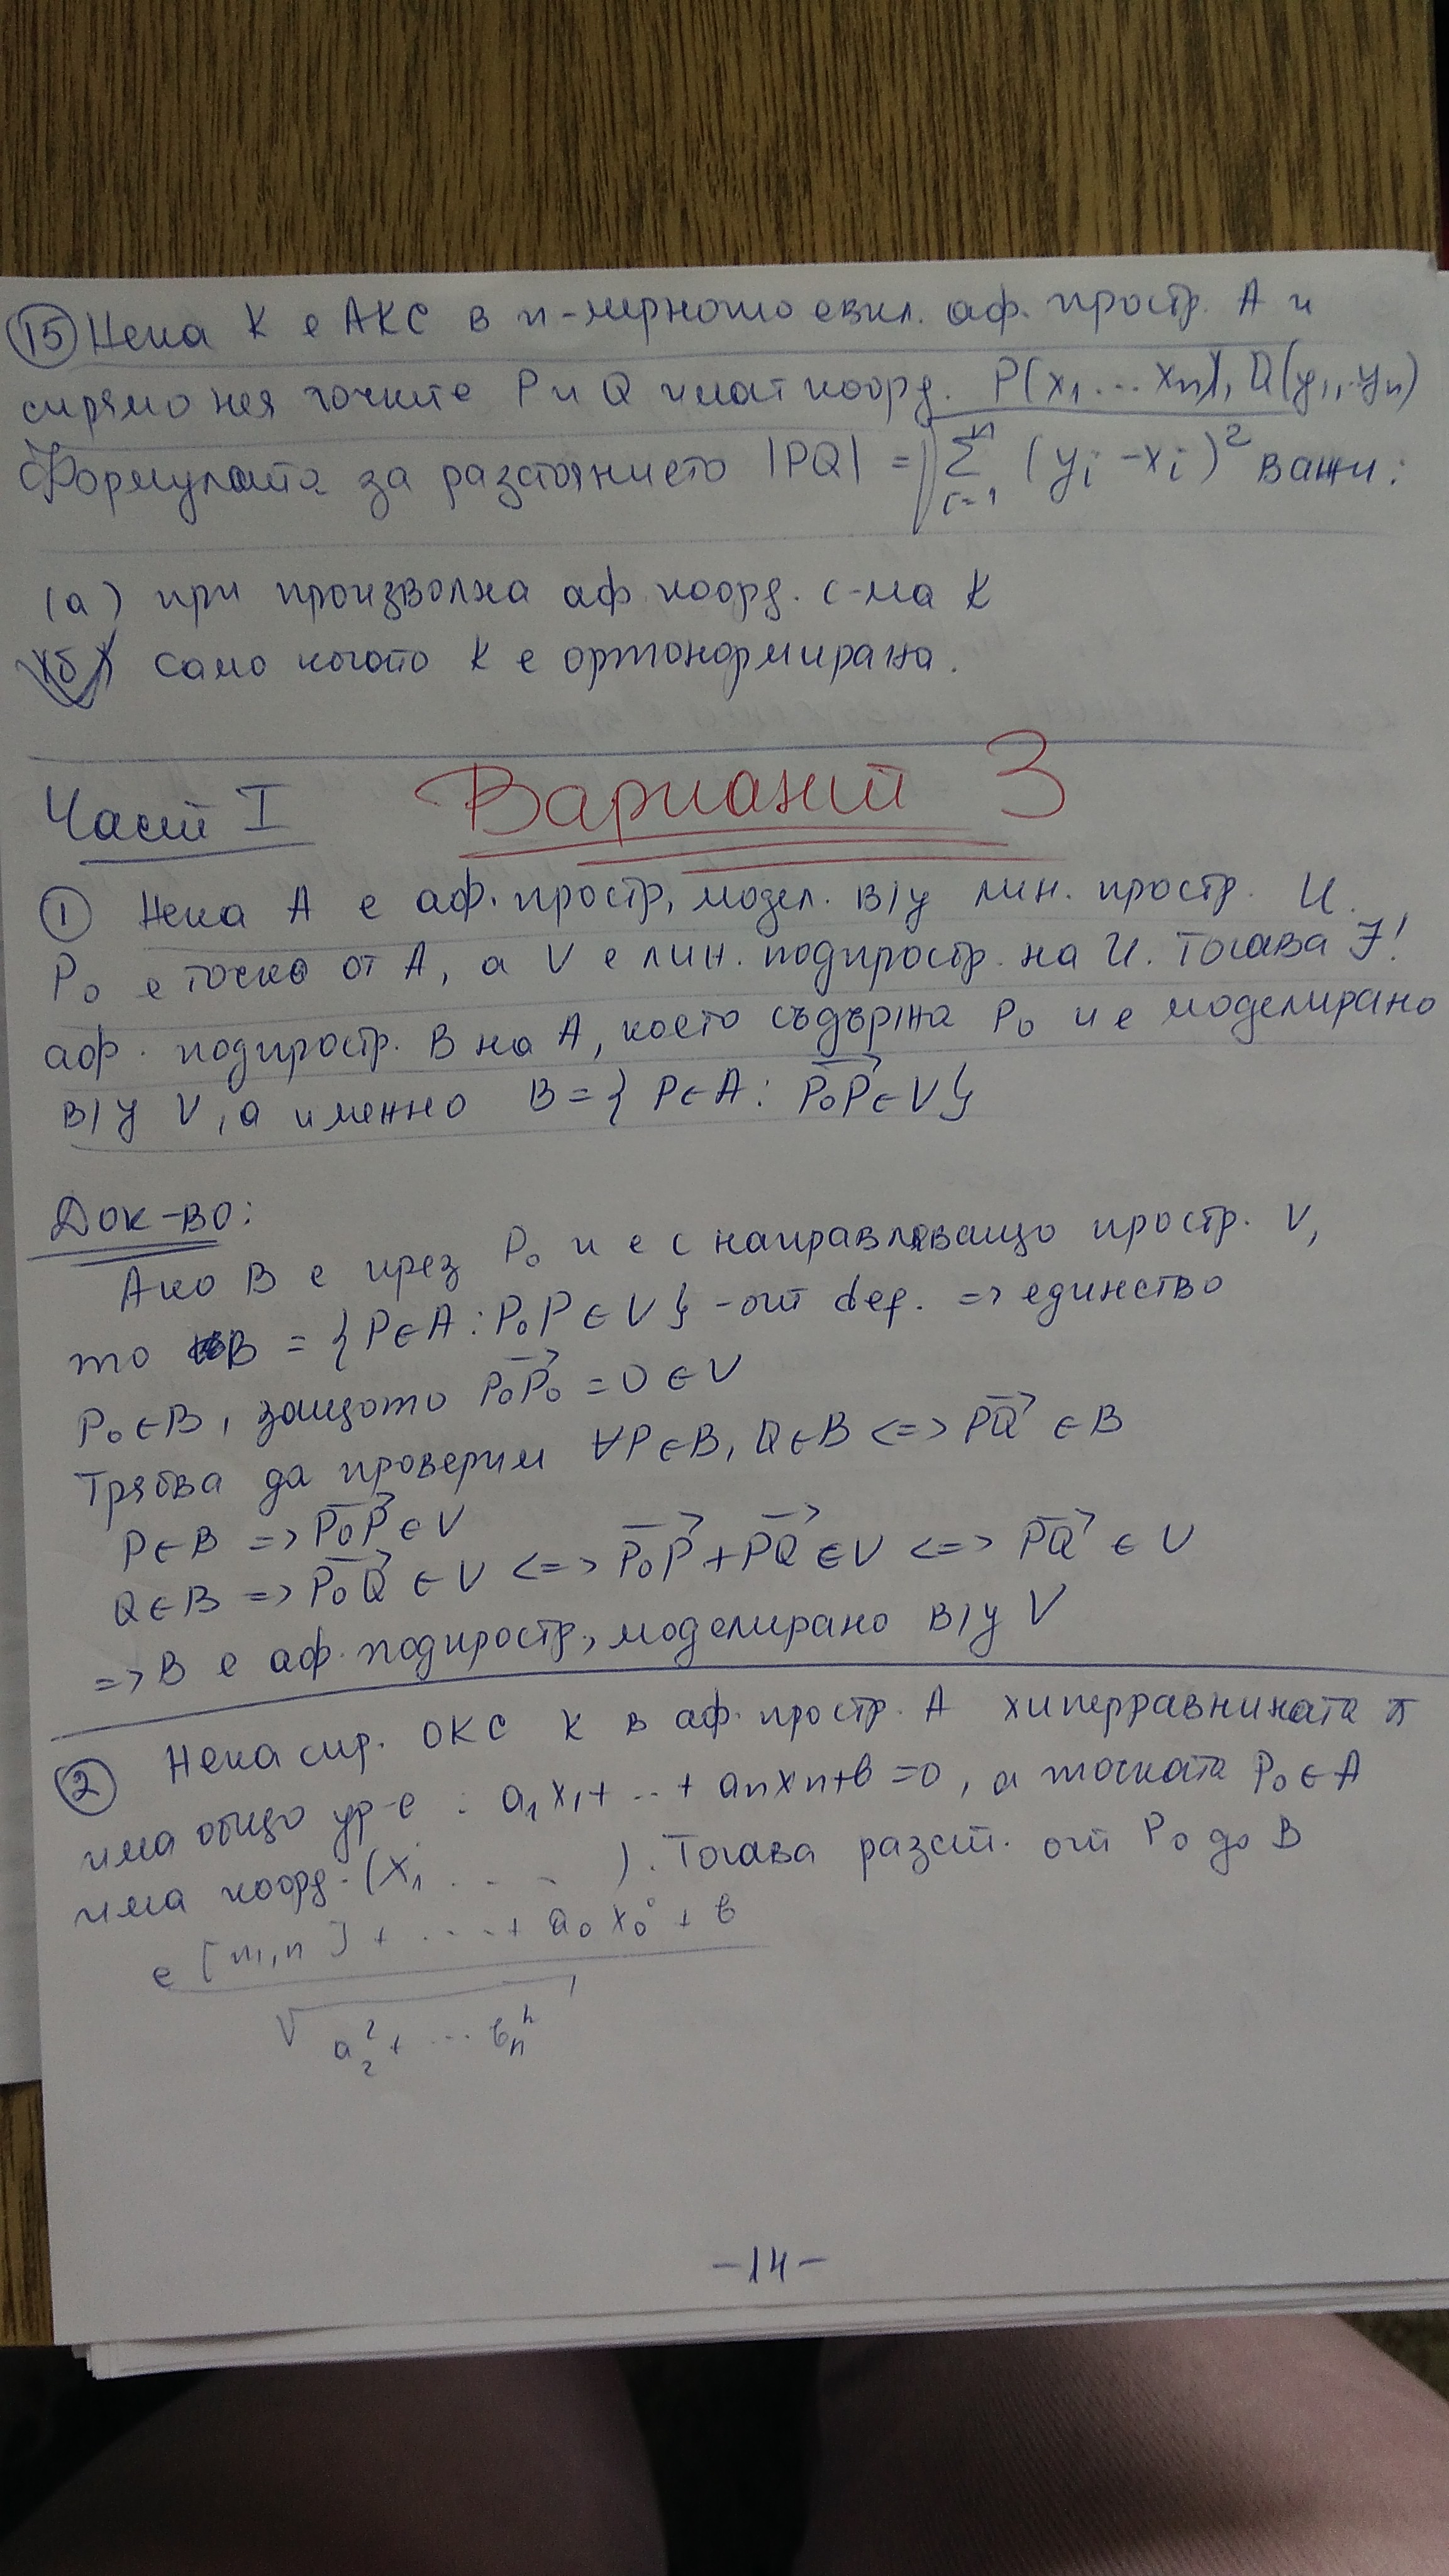 (15) Нека K е АКС в n-мерното евкл. аф. простр. A и
спрямо нея точките P и Q имат коорд. P(x₁...xₙ), Q(y₁,..yₙ)
Формулата за разстоянието |PQ| = √∑ᵢ₌₁ⁿ (yᵢ - xᵢ)² важи:
(а) при произволна аф коорд. с-ма K
(б) само когато K е ортонормирана.
Част I Вариант 3
(1) Нека A е аф. простр, модел. в/у лин. простр. U.
P₀ е точка от A, а V е лин. подпростр. на U. Тогава ∃!
аф. подпростр. B на A, което съдържа P₀ и е моделирано
в/у V, а именно B = { P∈A: P₀P⃗ ∈ V }
Док-во:
Ако B е през P₀ и е с направляващо простр. V,
то B = { P∈A : P₀P ∈ V } - от def. => единство
P₀∈B, защото P₀P₀⃗ = 0 ∈ V
Трябва да проверим ∀P∈B, Q∈B <=> PQ⃗ ∈ B
P∈B => P₀P⃗ ∈ V
Q∈B => P₀Q⃗ ∈ V <=> P₀P⃗ + PQ⃗ ∈ V <=> PQ⃗ ∈ U
=> B е аф. подпростр, моделирано в/у V
(2) Нека спр. ОКС K в аф. простр. A хиперравнината π
има общо ур-е : a₁x₁+ .. + aₙxₙ+b = 0, а точката P₀∈A
има коорд. (x₁ . . . ). Тогава разст. от P₀ до B
е [m,n] + ... + a₀x₀° + b
√ a₂² + ... bₙ²
-14-